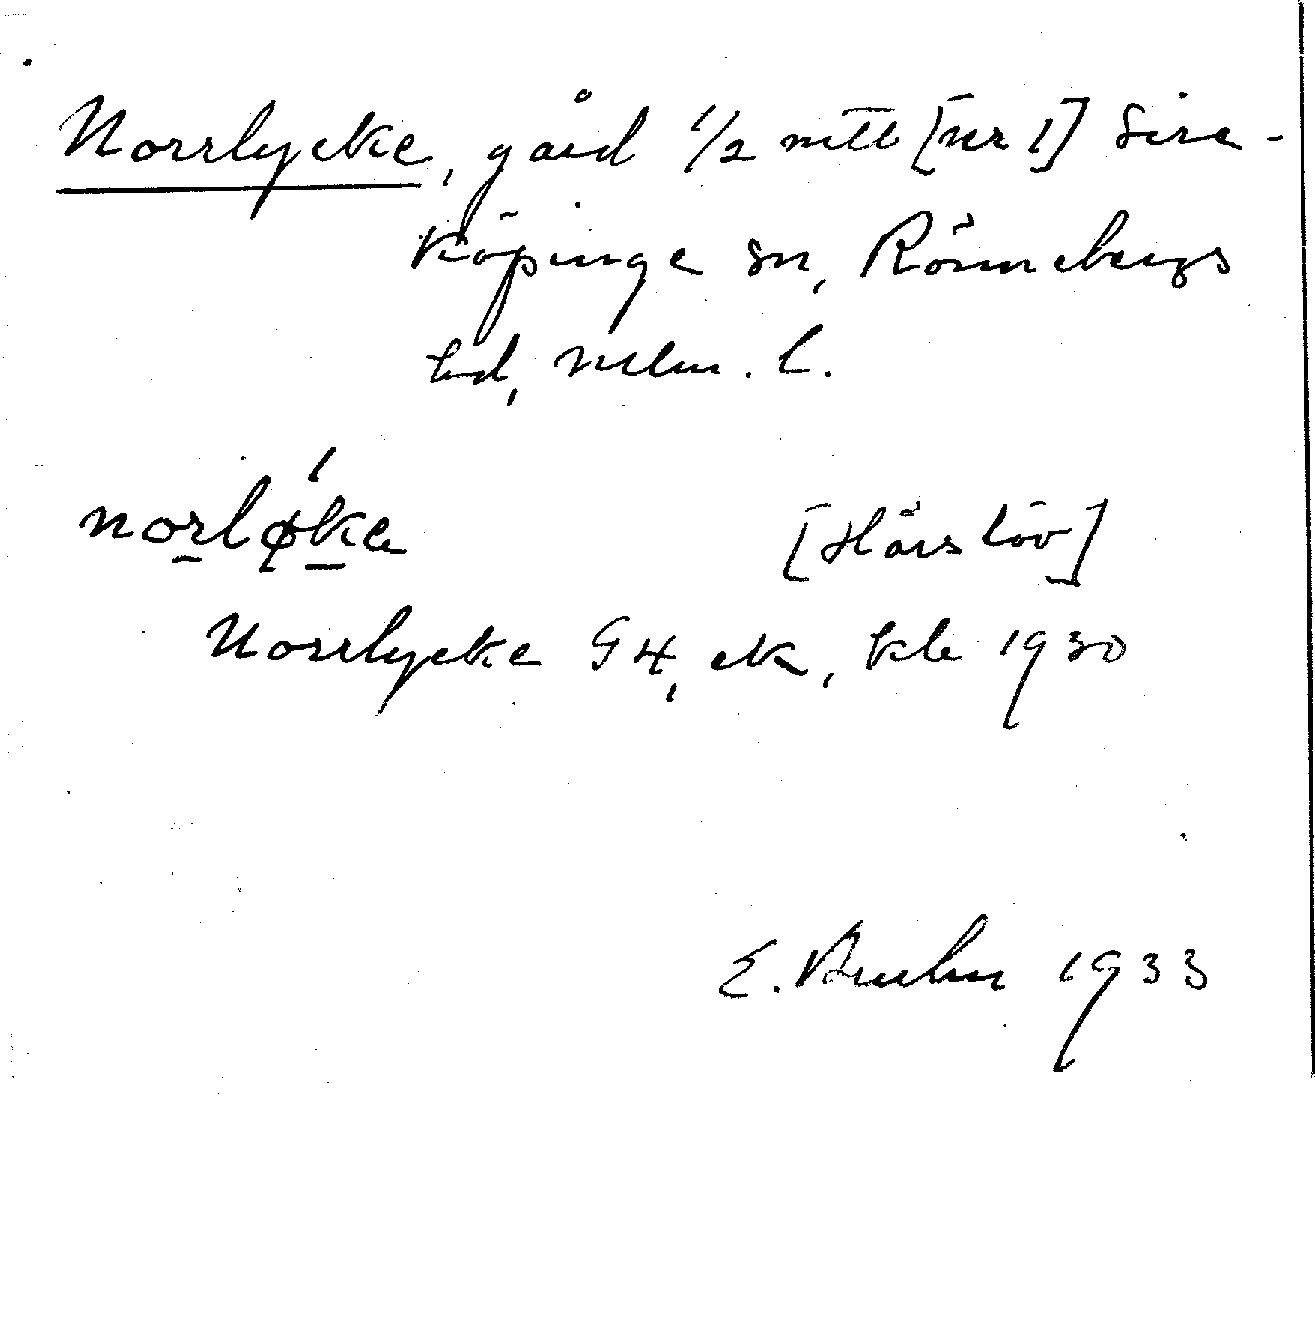 Norrlycke, gård 1/2 mtl [nr 1] Sire-
köpinge sn, Rönnebergs
hd, Malm. l.
norløke [Härslöv]
Norrlycke G4, ek, kbl 1930
E. Bruhn 1933